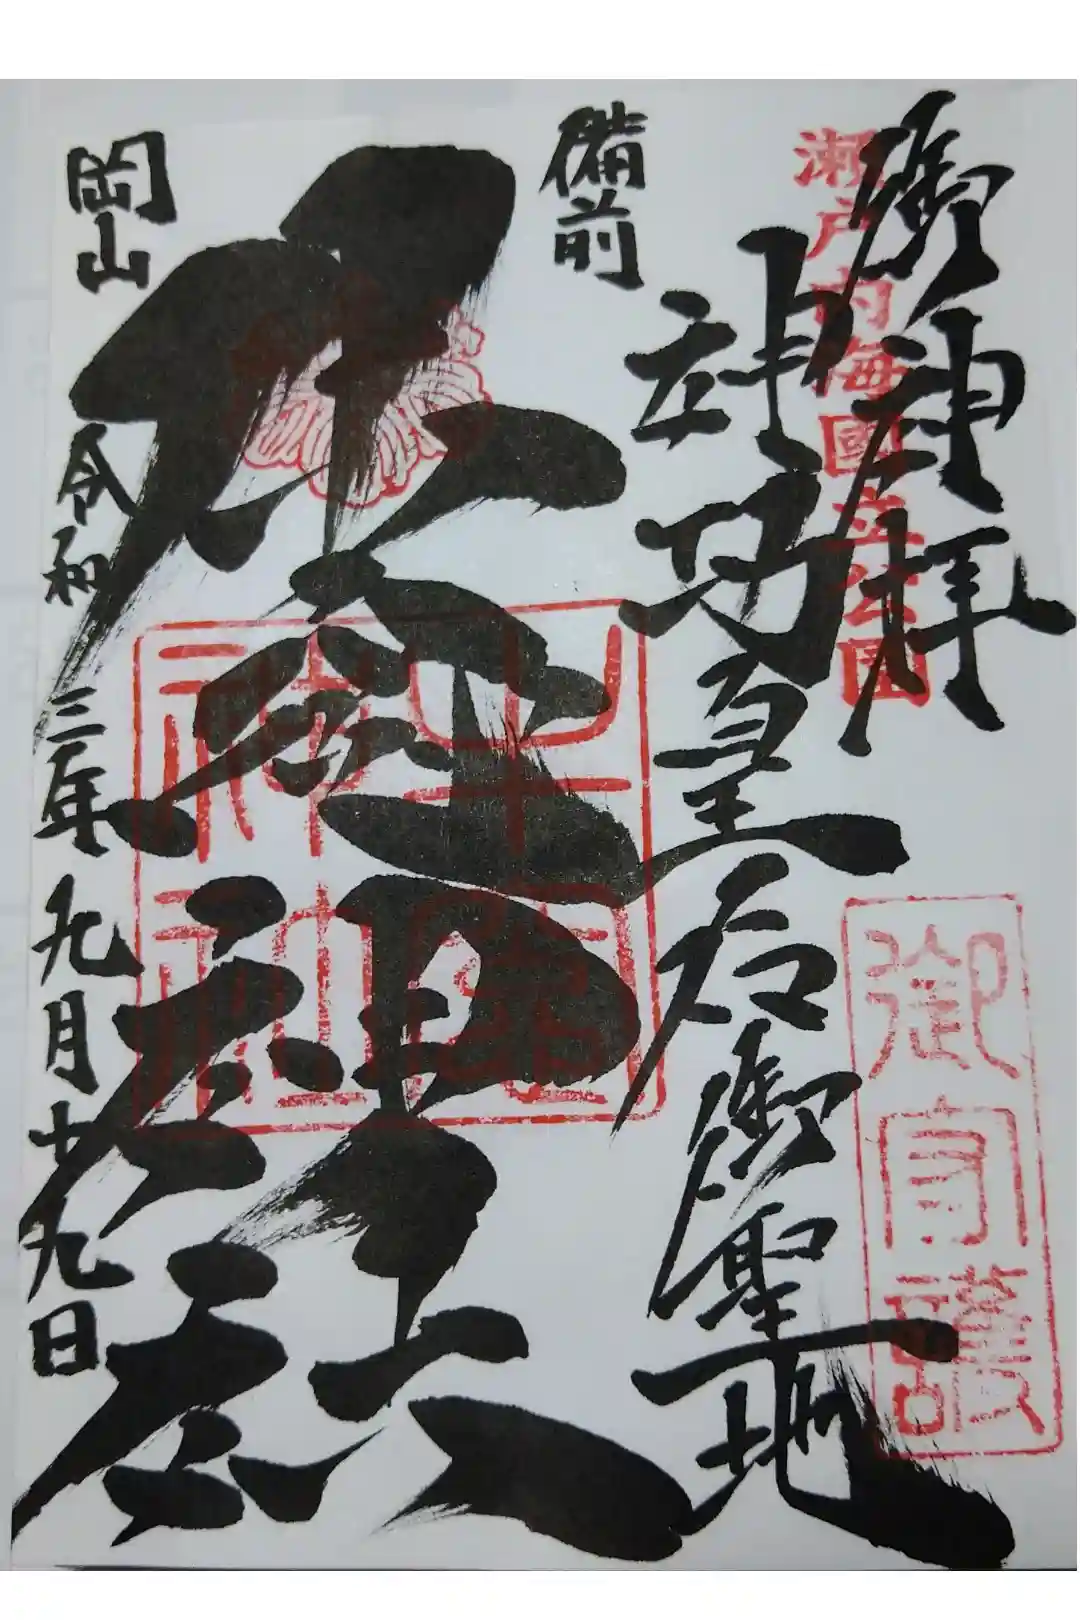 御神拝
瀬戸内海國立公園
御守護
神功皇后御聖地
備前
牛窓神社
牛窓神社
岡山
令和三年九月十九日